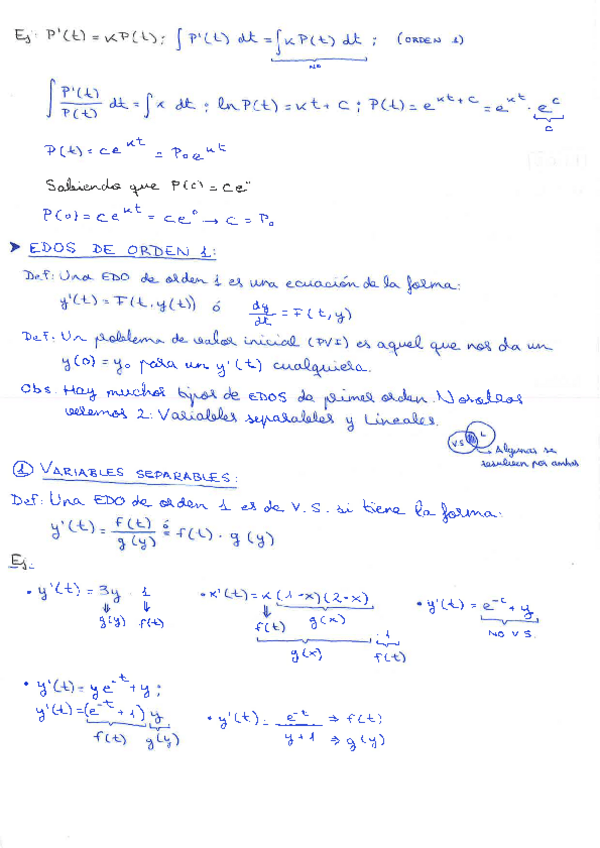 Ej: P'(t) = κP(t); ∫ P'(t) dt = ∫ κP(t) dt ; (ORDEN 1)
NO
∫ P'(t)/P(t) dt = ∫ κ dt ; ln P(t) = κt + c ; P(t) = e^(κt + c) = e^(κt) · e^c
c
P(t) = ce^(κt) = P₀e^(κt)
Sabiendo que P(0) = ce^0
P(0) = ce^(κt) = ce^0 → c = P₀
➤ EDOS DE ORDEN 1:
Def: Una EDO de orden 1 es una ecuación de la forma:
y'(t) = F(t, y(t)) ó dy/dt = F(t, y)
Def: Un problema de valor inicial (PVI) es aquel que nos da un
y(0) = y₀ para un y'(t) cualquiera.
Obs. Hay muchos tipos de EDOS de primer orden. Nosotros
veremos 2: Variables separables y Lineales.
VS L
→ Algunas se
resuelven por ambos
① VARIABLES SEPARABLES:
Def: Una EDO de orden 1 es de V.S. si tiene la forma:
y'(t) = f(t)/g(y) ó = f(t) · g(y)
Ej:
• y'(t) = 3y · 1
g(y) f(t)
• x'(t) = κ(1-x)(2-x)
f(t) g(x)
g(x) · 1
f(t)
• y'(t) = e^(-t) + y
NO V.S.
• y'(t) = ye^(-t) + y;
y'(t) = (e^(-t) + 1) y
f(t) g(y)
• y'(t) = e^(-t)/(y+1) ⇒ f(t)
⇒ g(y)